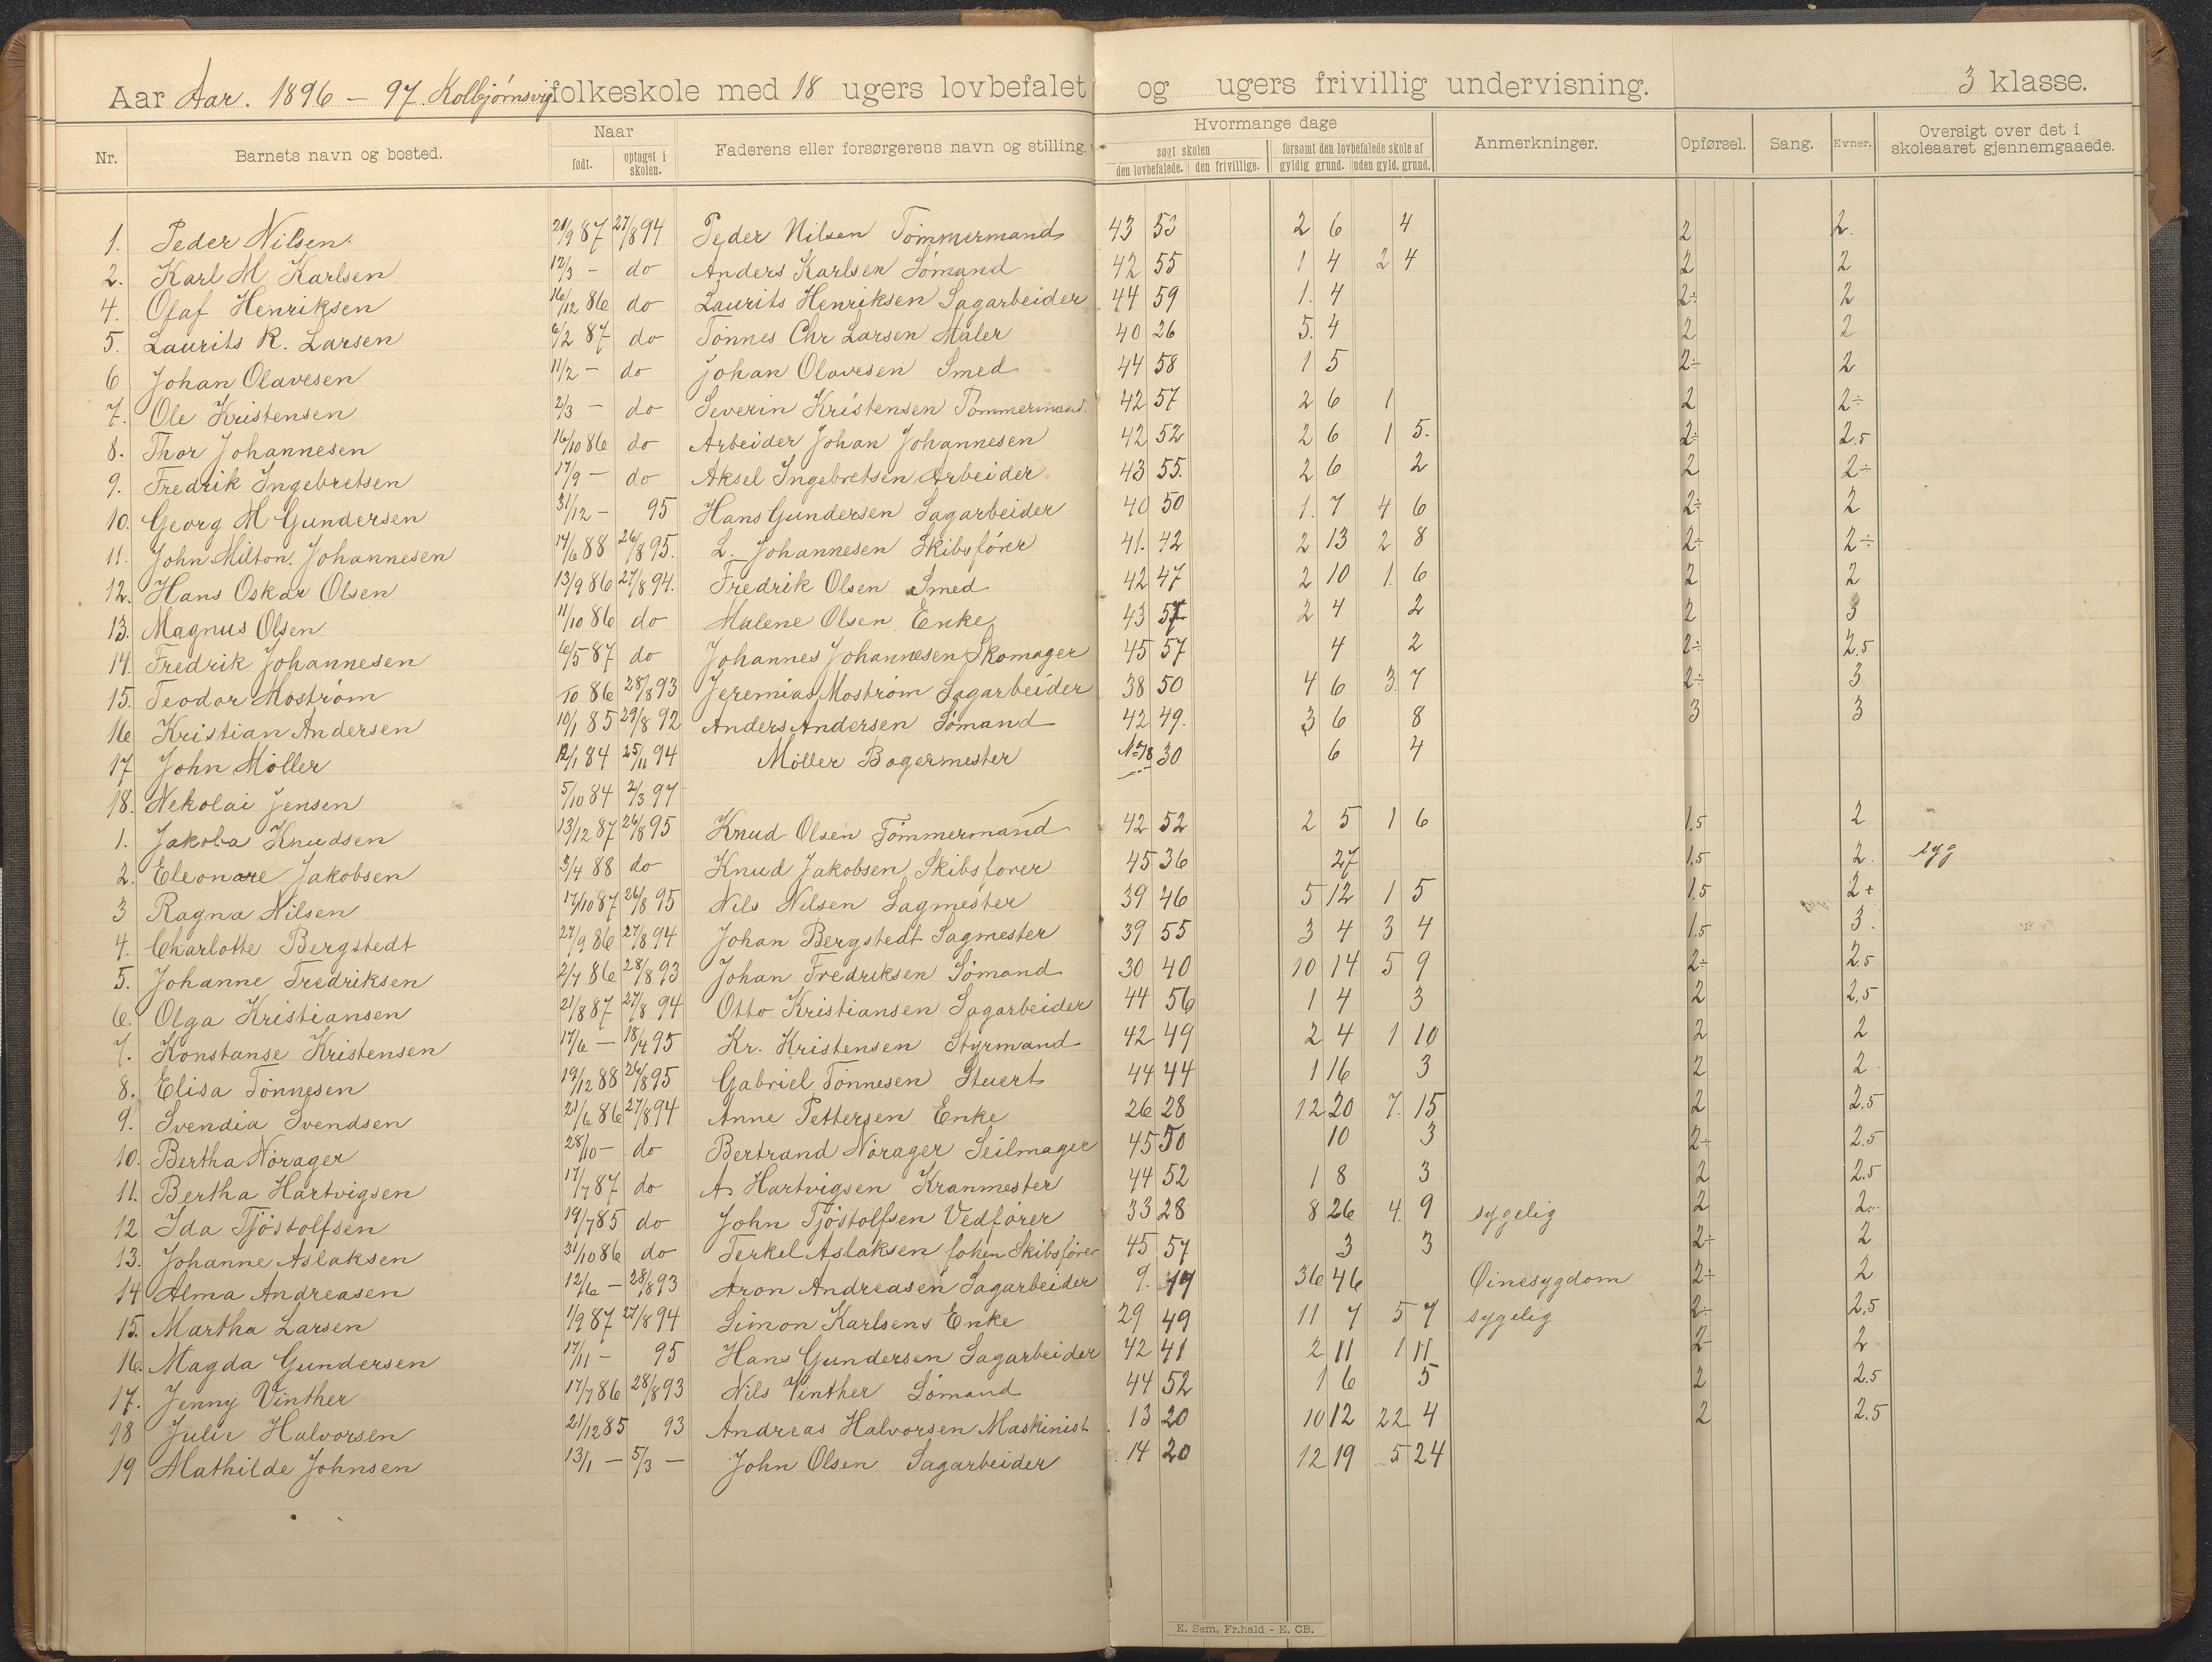 Aar Aar. 1896 – 97. Kolbjørnsvig folkeskole med 18 ugers lovbefalet og ugers frivillig undervisning. 3 klasse.
Nr. Barnets navn og bosted. Naar født. optaget i skolen. Faderens eller forsørgerens navn og stilling. Hvormange dage søgt skolen den lovbefalede. den frivillige. forsømt den lovbefalede skole af gyldig grund. uden gyld. grund. Anmerkninger. Opførsel. Sang. Evner. Oversigt over det i skoleaaret gjennemgaaede.
1. Peder Nilsen 20/9 87 27/8 94 Peder Nilsen Tømmermand 43 53 2 6 4 2 2.
2. Karl M Karlsen 12/3 – do Anders Karlsen Sømand 42 55 1 4 2 4 2 2
4. Olaf Henriksen 16/12 86 do Laurits Henriksen Sagarbeider 44 59 1. 4 2÷ 2
5. Laurits R. Larsen 6/2 87 do Tønnes Chr Larsen Maler 40 26 5. 4 2 2
6 Johan Olavesen 11/2 – do Johan Olavesen Smed 44 58 1 5 2÷ 2
7. Ole Kristensen 2/3 – do Severin Kristensen Tømmermand. 42 57 2 6 1 2 2÷
8. Thor Johannesen 16/10 86 do Arbeider Johan Johannesen 42 52 2 6 1 5. 2÷ 2.5
9. Fredrik Ingebretsen 17/9 – do Aksel Ingebretsen Arbeider 43 55. 2 6 2 2 2÷
10. Georg M Gundersen 31/12 – 95 Hans Gundersen Sagarbeider 40 50 1. 7 4 6 2÷ 2
11. John Milton. Johannesen 14/6 88 26/8 95. L. Johannesen Skibsfører 41. 42 2 13 2 8 2÷ 2÷
12. Hans Oskar Olsen 13/9 86 27/8 94. Fredrik Olsen Smed 42 47 2 10 1. 6 2 2
13. Magnus Olsen 11/10 86 do Malene Olsen Enke 43 57 2 4 2 2 3
14. Fredrik Johannesen 6/5 87 do Johannes Johannesen Skomager 45 57 4 2 2÷ 2.5
15. Teodor Moström 10 86 28/8 93 Jeremias Moström Sagarbeider 38 50 4 6 3. 7 2÷ 3
16 Kristian Andersen 10/1 85 29/8 92 Anders Andersen Sømand 42 49. 3 6 8 3 3
17 John Möller 12/1 84 25/11 94 Möller Bagermester 30 6 4
18. Nekolai Jensen 5/10 84 2/3 97
1. Jakoba Knudsen 13/12 87 26/8 95 Knud Olsen Tømmermand 42 52 2 5 1 6 1.5 2
2. Eleonare Jakobsen 3/4 88 do Knud Jakobsen Skibsfører 45 36 27 1.5 2. syg
3 Ragna Nilsen 17/10 87 26/8 95 Nils Nilsen Sagmester 39 46 5 12 1 5 1.5 2+
4. Charlotte Bergstedt 27/9 86 27/8 94 Johan Bergstedt Sagmester 39 55 3 4 3 4 1.5 3.
5. Johanne Fredriksen 2/7 86 28/8 93 Johan Fredriksen Sømand 30 40 10 14 5 9 2÷ 2.5
6. Olga Kristiansen 21/8 87 27/8 94 Otto Kristiansen Sagarbeider 44 56 1 4 3 2 2,5
7. Konstanse Kristensen 17/6 – 18/4 95 Kr. Kristensen Styrmand 42 49 2 4 1 10 2 2
8. Elisa Tönnesen 19/12 88 26/8 95 Gabriel Tönnesen Stuert 44 44 1 16 3 2 2
9. Svendia Svendsen 21/6 86 27/8 94 Anne Pettersen Enke 26 28 12 20 7. 15 2 2.5
10. Bertha Nörager 28/10 – do Bertrand Nörager Seilmager 45 50 10 3 2÷ 2.5
11. Bertha Hartvigsen 17/7 87 do A Hartvigsen Kranmester 44 52 1 8 3 2 2.5
12 Ida Tjöstolfsen 19/7 85 do John Tjöstolfsen Vedfører 33 28 8 26 4. 9 sygelig 2 2.
13. Johanne Aslaksen 31/10 86 do Terkel Aslaksen Skibsfører 45 57 3 3 2÷ 2
14 Alma Andreasen 12/6 – 28/8 93 Aron Andreasen Sagarbeider 9. 19 36 46 Øinesygdom 2÷ 2
15. Martha Larsen 1/9 87 27/8 94 Simon Karlsens Enke 29 49 11 7 5 7 sygelig 2÷ 2,5
16. Magda Gundersen 17/11 – 95 Hans Gundersen Sagarbeider 42 41 2 11 1 11 2– 2.
17. Jenny Vinther 17/7 86 28/8 93 Nils Vinther Sømand 44 52 1 6 5 2 2.5
18 Julie Halvorsen 21/12 85 93 Andreas Halvorsen Maskinist 13 20 10 12 22 4 2 2.5
19 Mathilde Johnsen 13/1 – 5/3 – John Olsen Sagarbeider 14 20 12 19 5 24
E. Sem, Fr.hald - E. CB.